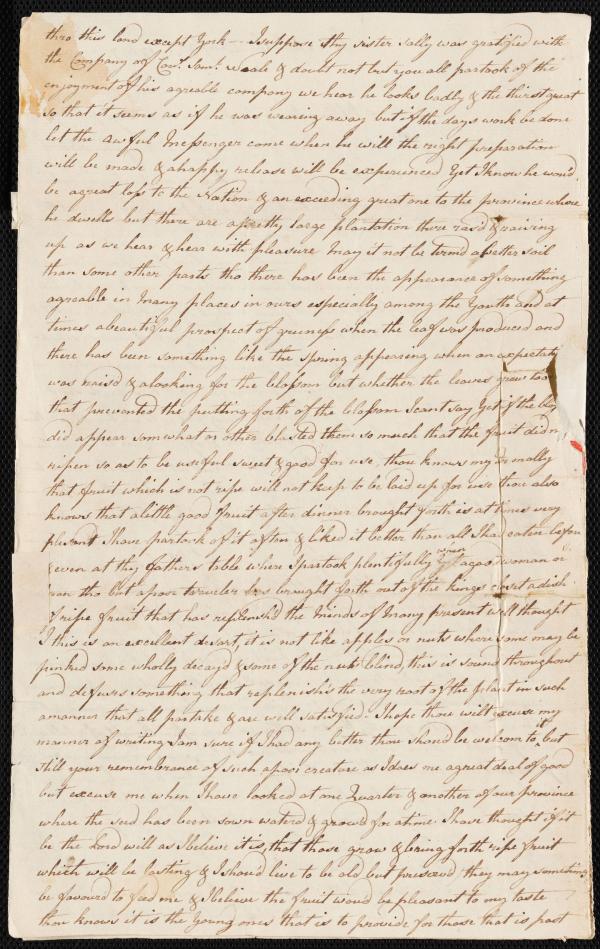 thro this land except York -- I suppose thy sister Sally was gratified with
the Company of Cous. Saml. Neale & doubt not but you all partook of the
enjoyment of his agreable company we hear he looks badly & the thirst great
so that it seems as if he was wearing away but if the days work be done
let the awful Messenger come when he will the right preparation
will be made & a happy release will be experienced Yet I know he would
be a great loss to the Nation & an exceeding great one to the province where
he dwells but there are a pretty large plantation there rais'd & raising
up as we hear & hear with pleasure May it not be term'd a better soil
than some other parts tho there has been the appearance of something
agreable in many places in ours especially among the Youth and at
times a beautiful prospect of greeness when the leaf was produced and
there has been something like the spring appearing when an expectati
was raised & a looking for the blossom but whether the leaves grew too
that prevented the putting forth of the blossom I cant say Yet if the
did appear somwhat or other blasted them so much that the fruit didn
ripen so as to be useful sweet & good for use, thou knows my Molly
that fruit which is not ripe will not keep to be laid up for use thou also
knows that a little good fruit after dinner brought forth is at times very
plesent I have partook of it often & liked it better than all I had eaten before
& even at thy fathers table where I partook plentifully when a good woman or
man tho but a poor traveler has brought forth out of the kings closet a dish
of ripe fruit that has replenishd the minds of many present well thought
I this is an excellent desart, it is not like apples or nuts where som may be
pinked some wholly decayd & some of the nuts blind, this is sound throughout
and defuses something that replenishs the very root of the plant in such
a manner that all partake & are well satisfied. I hope thou wilt excuse my
manner of writing I am sure if I had any better thou should be welcom to it but
still your remembrance of such a poor creature as I does me a great deal of good
but excuse me when I have looked at one Quarter & another of our province
where the seed has been sown waterd & grow'd for a time I have thought if it
be the Lord will as I believe it is, that those grow & bring forth ripe fruit
which will be lasting & I should live to be old but preserved they may something
be favoured to feed me & I believe the fruit woud be pleasant to my taste
thou knows it is the young ones that is to provide for those that is past